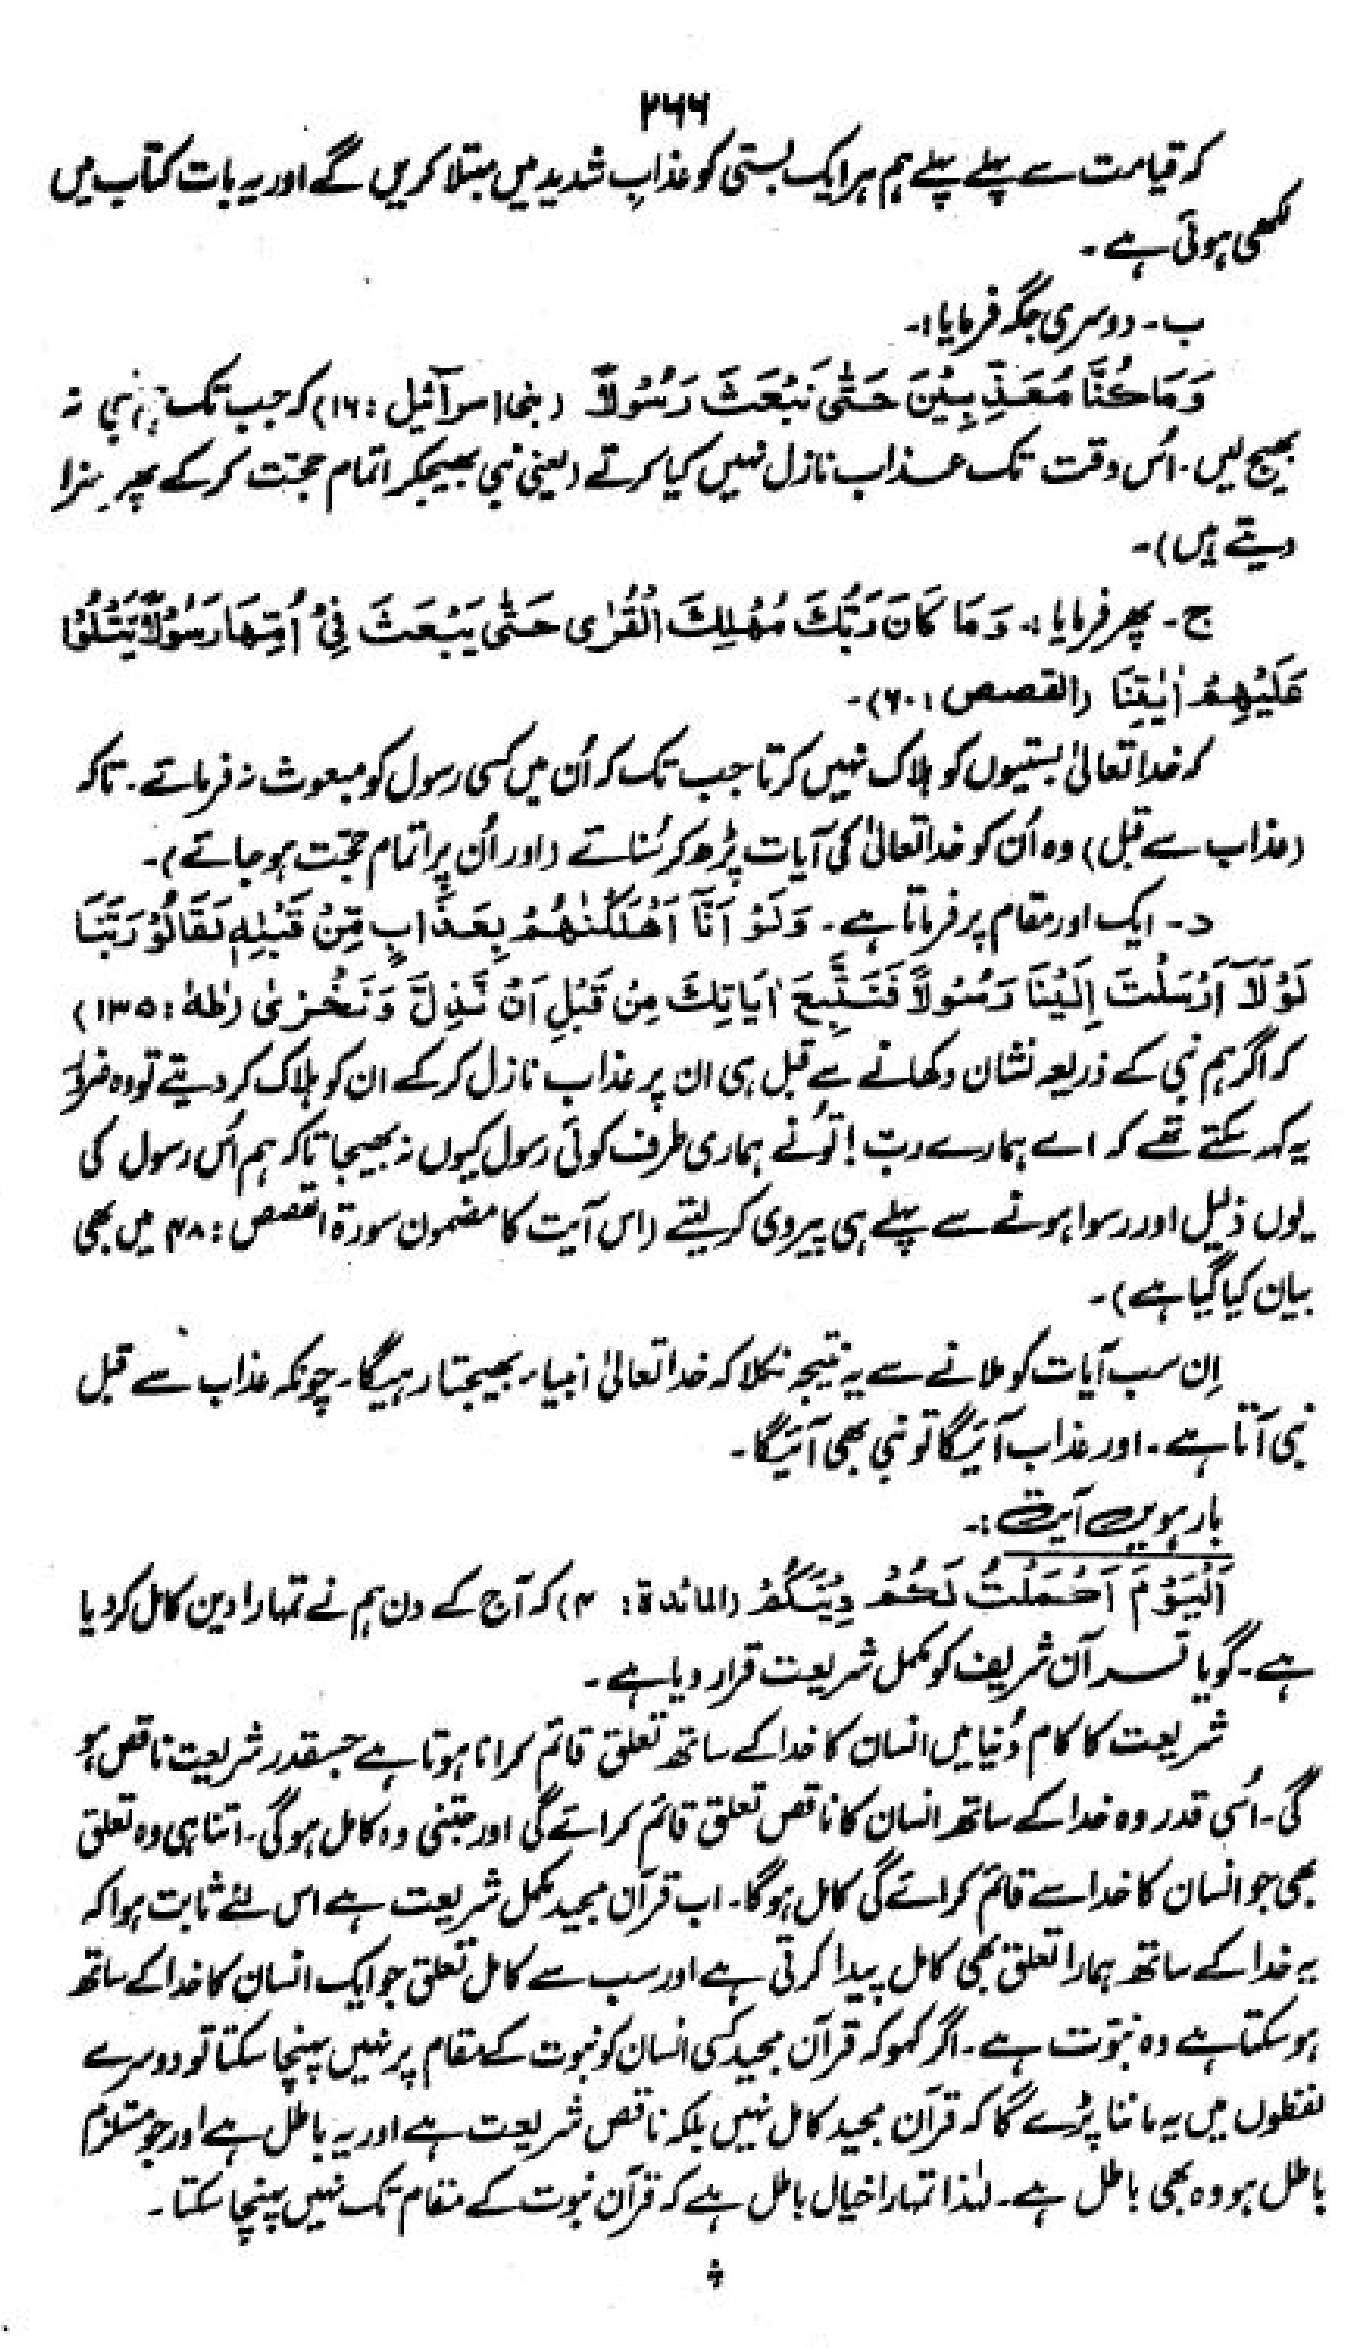 ۲۶۶
کہ قیامت سے پہلے پہلے ہم ہر ایک بستی کو عذابِ شدید میں مبتلا کریں گے اور یہ بات کتاب میں
لکھی ہوئی ہے۔
ب۔ دوسری جگہ فرمایا:۔
وَمَا كُنَّا مُعَذِّبِيْنَ حَتّٰى نَبْعَثَ رَسُوْلًا (بنی اسرآئیل : ۱۶) کہ جب تک نبی نہ
بھیج لیں۔ اُس وقت تک عذاب نازل نہیں کیا کرتے (یعنی نبی بھیجکر اتمام حجت کر کے پھر سزا
دیتے ہیں)۔
ج۔ پھر فرمایا:۔ وَمَا كَانَ رَبُّكَ مُهْلِكَ الْقُرٰى حَتّٰى يَبْعَثَ فِيْ اُمِّهَا رَسُوْلًا يَّتْلُوْا
عَلَيْهِمْ اٰيٰتِنَا (القصص : ۶۰)۔
کہ خدا تعالیٰ بستیوں کو ہلاک نہیں کرتا جب تک کہ اُن میں کسی رسول کو مبعوث نہ فرمائے۔ تاکہ
(عذاب سے قبل) وہ اُن کو خدا تعالیٰ کی آیات پڑھ کر سُنائے (اور اُن پر اتمام حجّت ہو جائے)۔
د۔ ایک اور مقام پر فرماتا ہے۔ وَلَوْ اَنَّآ اَهْلَكْنٰهُمْ بِعَذَابٍ مِّنْ قَبْلِهٖ لَقَالُوْ رَبَّنَا
لَوْلَآ اَرْسَلْتَ اِلَيْنَا رَسُوْلًا فَنَتَّبِعَ اٰيَاتِكَ مِنْ قَبْلِ اَنْ نَّذِلَّ وَنَخْزٰى (طٰهٰ : ۱۳۵)
کہ اگر ہم نبی کے ذریعہ نشان دکھانے سے قبل ہی ان پر عذاب نازل کر کے ان کو ہلاک کر دیتے تو وہ ضرور
یہ کہہ سکتے تھے کہ اے ہمارے ربّ! تُو نے ہماری طرف کوئی رسول کیوں نہ بھیجا تاکہ ہم اُس رسول کی
یوں ذلیل اور رسوا ہونے سے پہلے ہی پیروی کر لیتے (اس آیت کا مضمون سورۃ القصص : ۴۸ میں بھی
بیان کیا گیا ہے)۔
اِن سب آیات کو ملانے سے یہ نتیجہ نکلا کہ خدا تعالیٰ انبیاء بھیجتا رہیگا۔ چونکہ عذاب سے قبل
نبی آتا ہے۔ اور عذاب آئیگا تو نبی بھی آئیگا۔
بارہویں آیت:۔
اَلْيَوْمَ اَكْمَلْتُ لَكُمْ دِيْنَكُمْ (المائدۃ : ۴) کہ آج کے دن ہم نے تمہارا دین کامل کر دیا
ہے۔ گویا قرآن شریف کو مکمل شریعت قرار دیا ہے۔
شریعت کا کام دُنیا میں انسان کا خدا کے ساتھ تعلق قائم کرانا ہوتا ہے جسقدر شریعت ناقص ہو
گی۔ اُسی قدر وہ خدا کے ساتھ انسان کا ناقص تعلق قائم کرائے گی اور جتنی وہ کامل ہو گی۔ اتنا ہی وہ تعلق
بھی جو انسان کا خدا سے قائم کرائے گی کامل ہو گا۔ اب قرآن مجید مکمل شریعت ہے اس لئے ثابت ہوا کہ
یہ خدا کے ساتھ ہمارا تعلق بھی کامل پیدا کرتی ہے اور سب سے کامل تعلق جو ایک انسان کا خدا کے ساتھ
ہو سکتا ہے وہ نبوّت ہے۔ اگر کہو کہ قرآن مجید کسی انسان کو نبوت کے مقام پر نہیں پہنچا سکتا تو دوسرے
لفظوں میں یہ ماننا پڑے گا کہ قرآن مجید کامل نہیں بلکہ ناقص شریعت ہے اور یہ باطل ہے اور جو مستلزم
باطل ہو وہ بھی باطل ہے۔ لہٰذا تمہارا خیال باطل ہے کہ قرآن نبوت کے مقام تک نہیں پہنچا سکتا۔